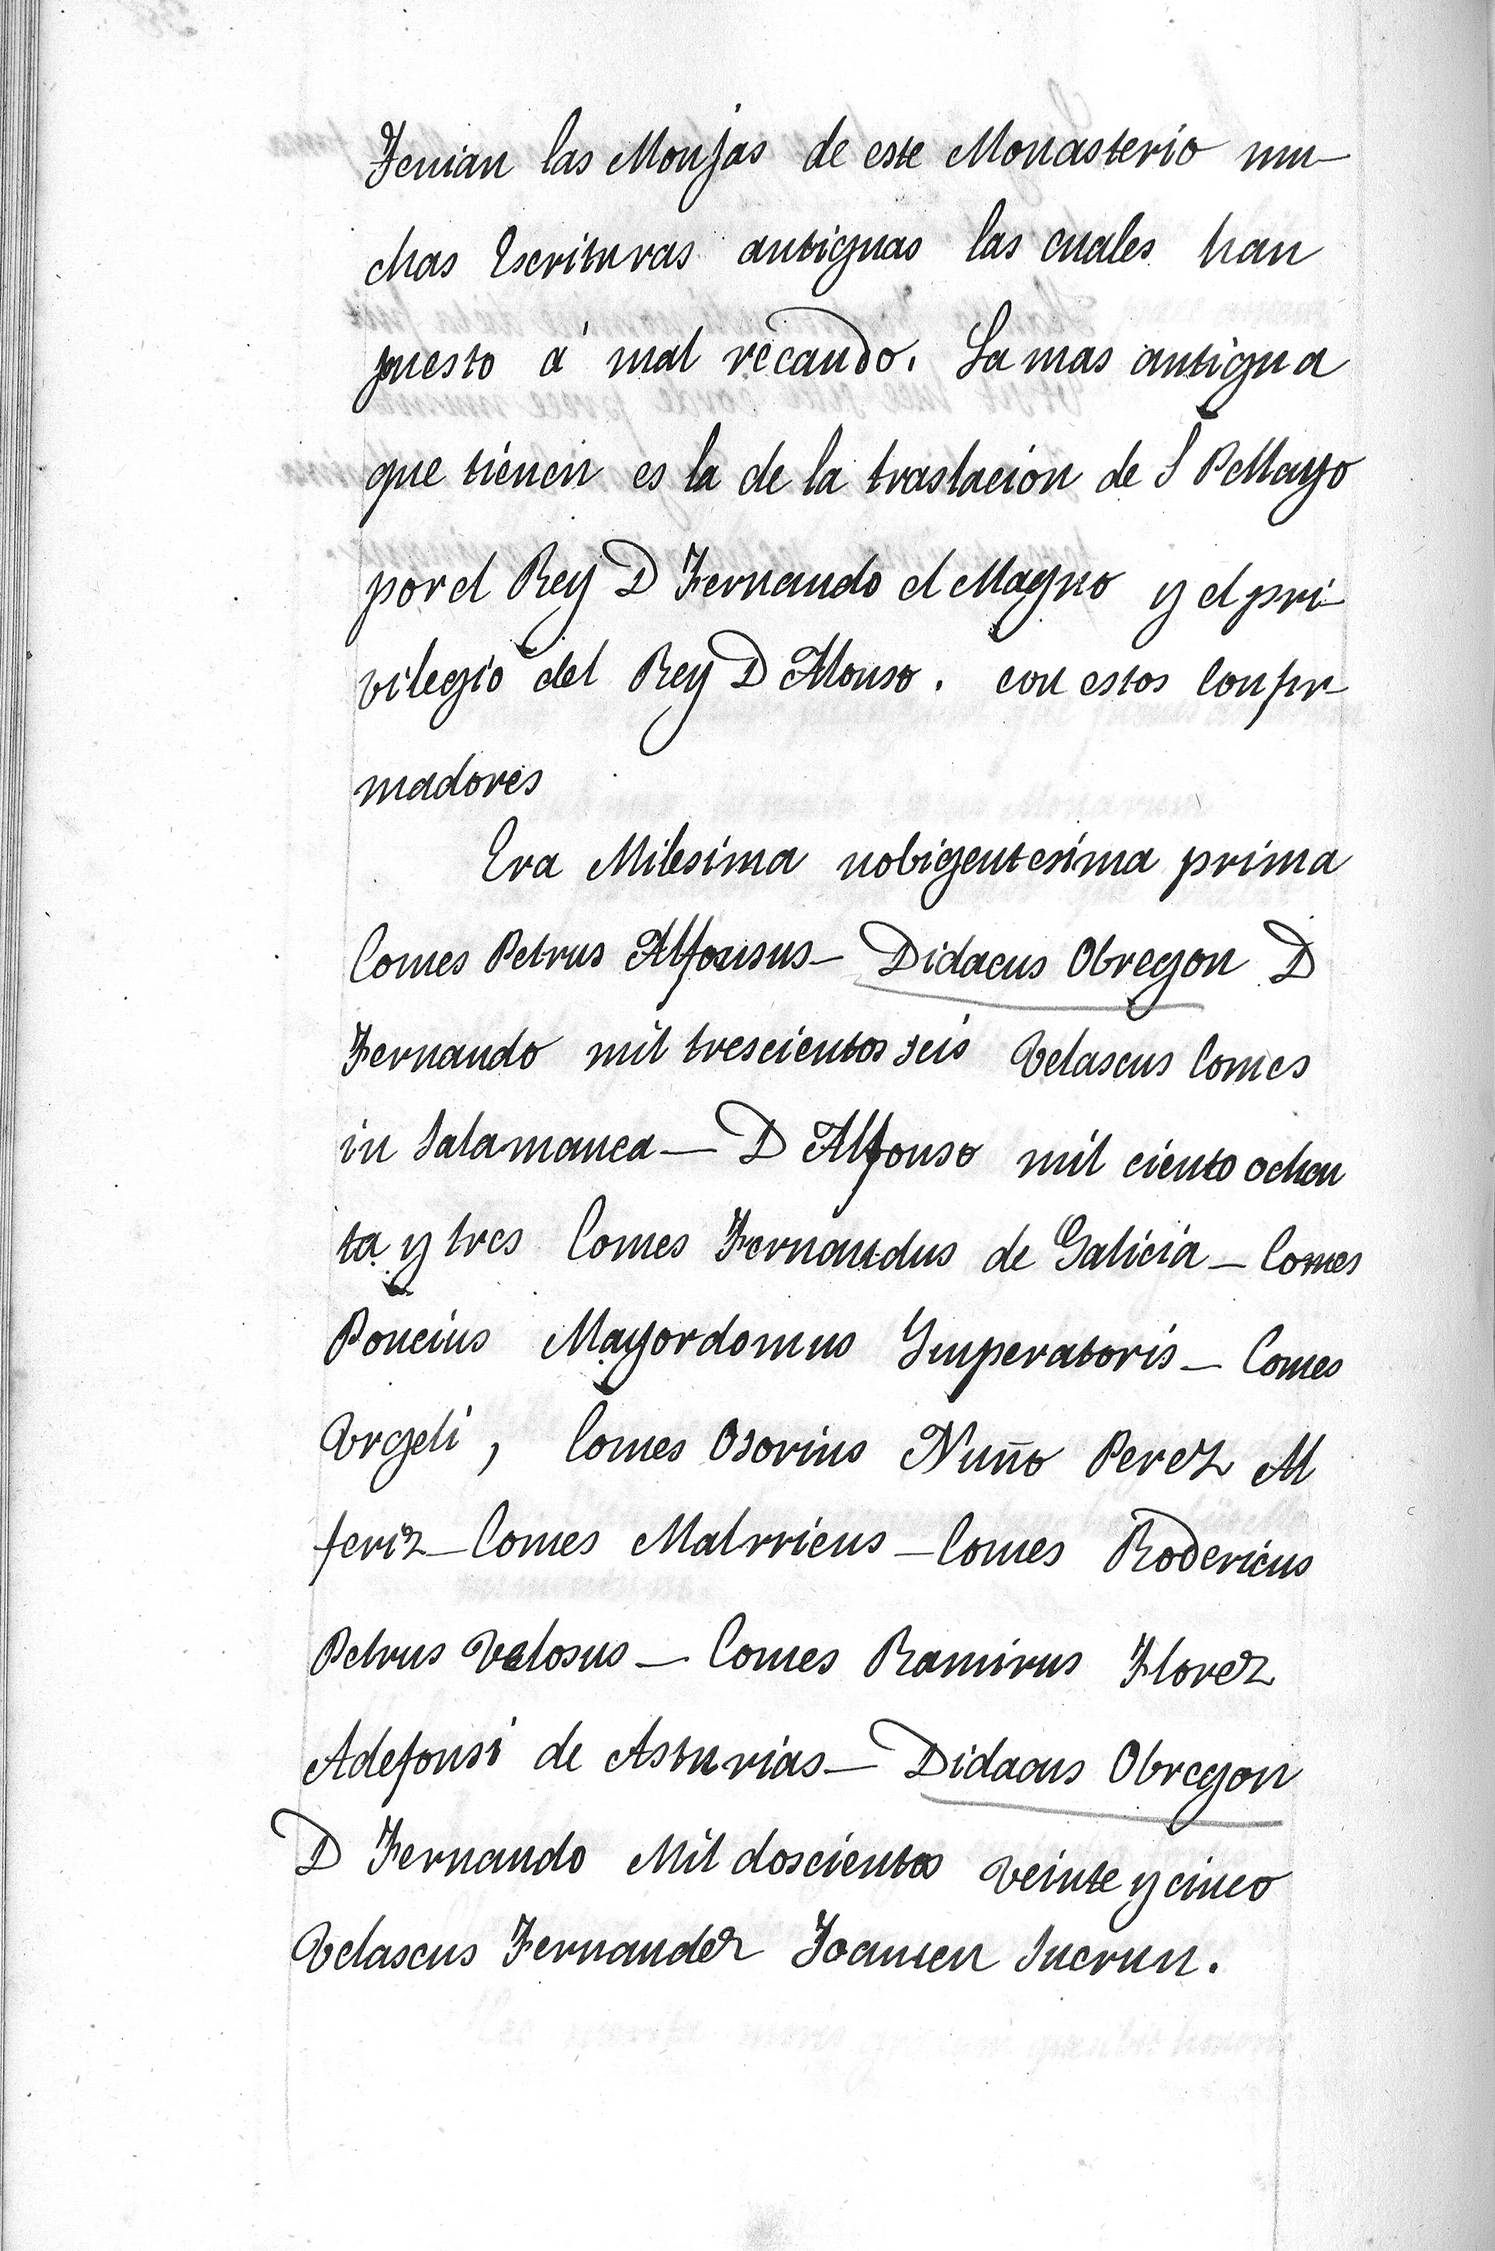 Tenian las Monjas de este Monasterio mu-
chas Escrituras antiguas las cuales han
puesto á mal recaudo. La mas antigua
que tienen es la de la traslacion de S Pellayo
por el Rey D Fernando el Magno y el pri-
vilegio del Rey D Alonso. con estos confir-
madores
Era Milesima nobigentesima prima
Comes Petrus Alfonsus- Didacus Obregon D
Fernando mil trescientos seis Velascus Comes
in Salamanca- D Alfonso mil ciento ochen
ta y tres Comes Fernandus de Galicia- Comes
Poncius Mayordomus Imperatoris- Comes
Urgeli, Comes Osorius Nuño Perez Al
feriz- Comes Malrricus- Comes Rodericus
Petrus Velosus- Comes Ramirus Florez
Adefonsi de Asturias- Didacus Obregon
D Fernando Mil doscientos veinte y cinco
Velascus Fernandez Joanien Sucrun.